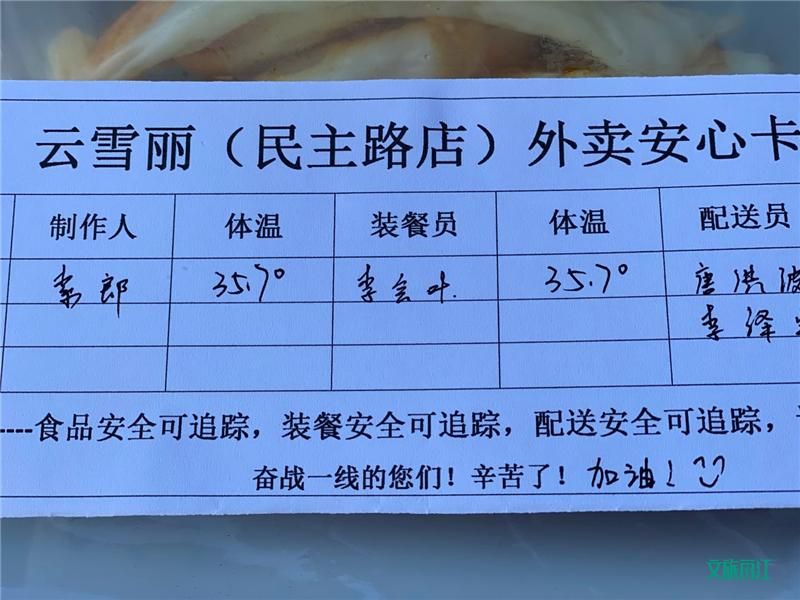 云雪丽（民主路店）外卖安心卡
制作人 体温 装餐员 体温 配送员
郎 35.7° 李会叶 35.7° 唐洪波
李绎
----食品安全可追踪，装餐安全可追踪，配送安全可追踪，
奋战一线的您们！辛苦了！加油！
文旅内江